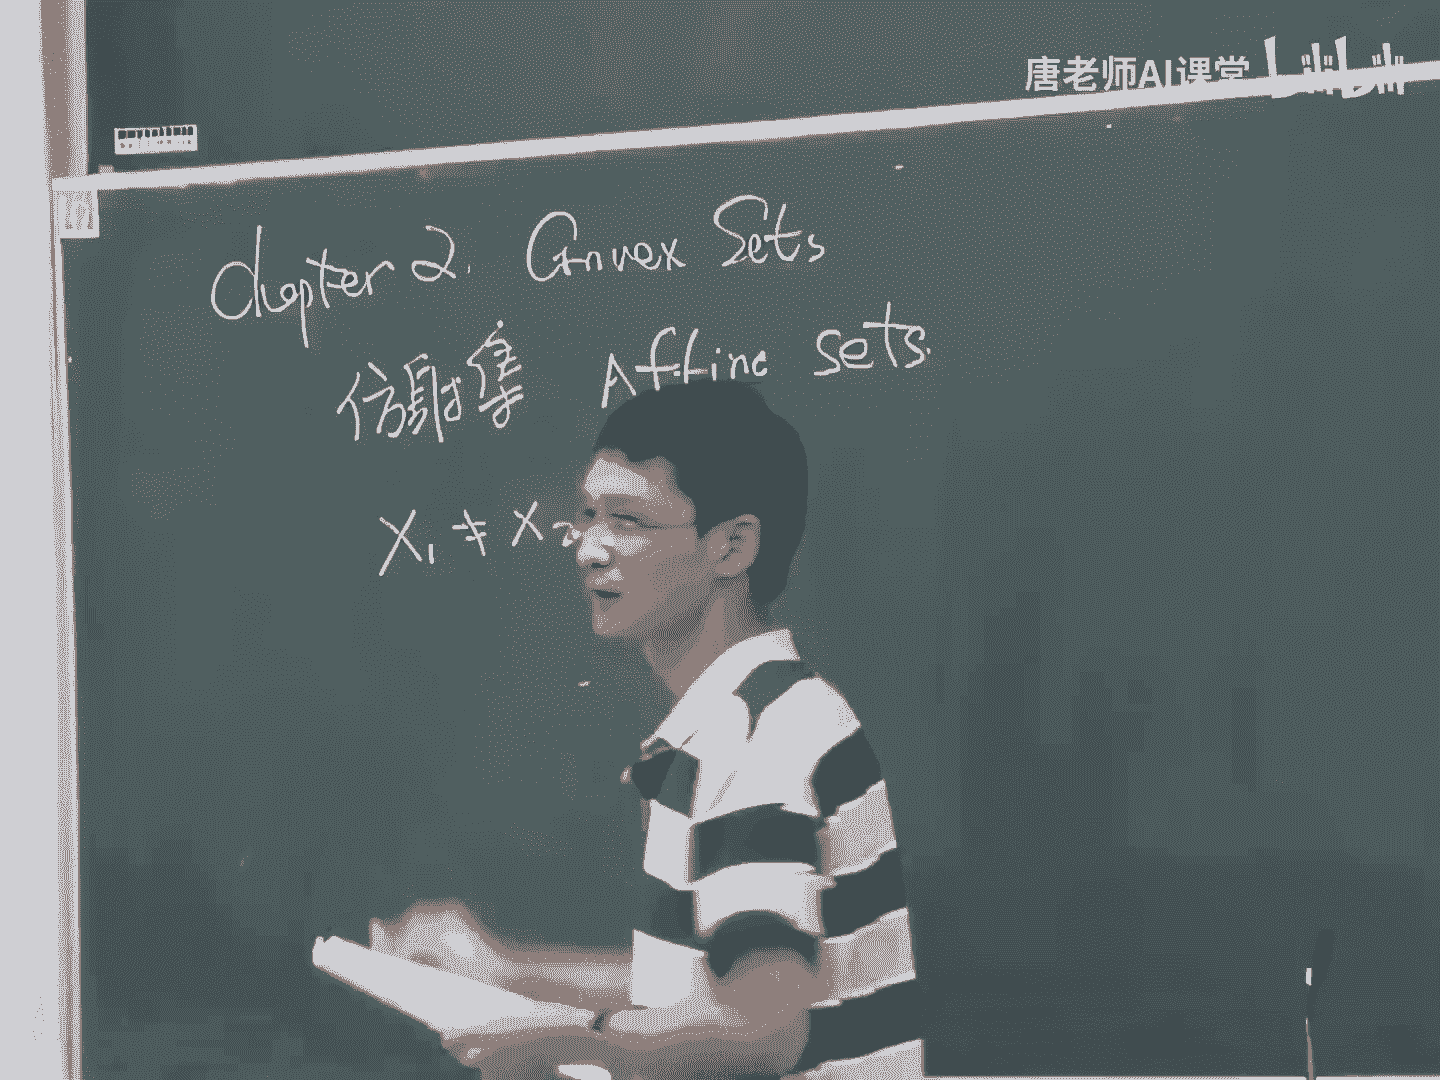 唐老师AI课堂 bilibili
Chapter 2. Convex Sets
仿射集 Affine sets.
X₁ ≠ X₂